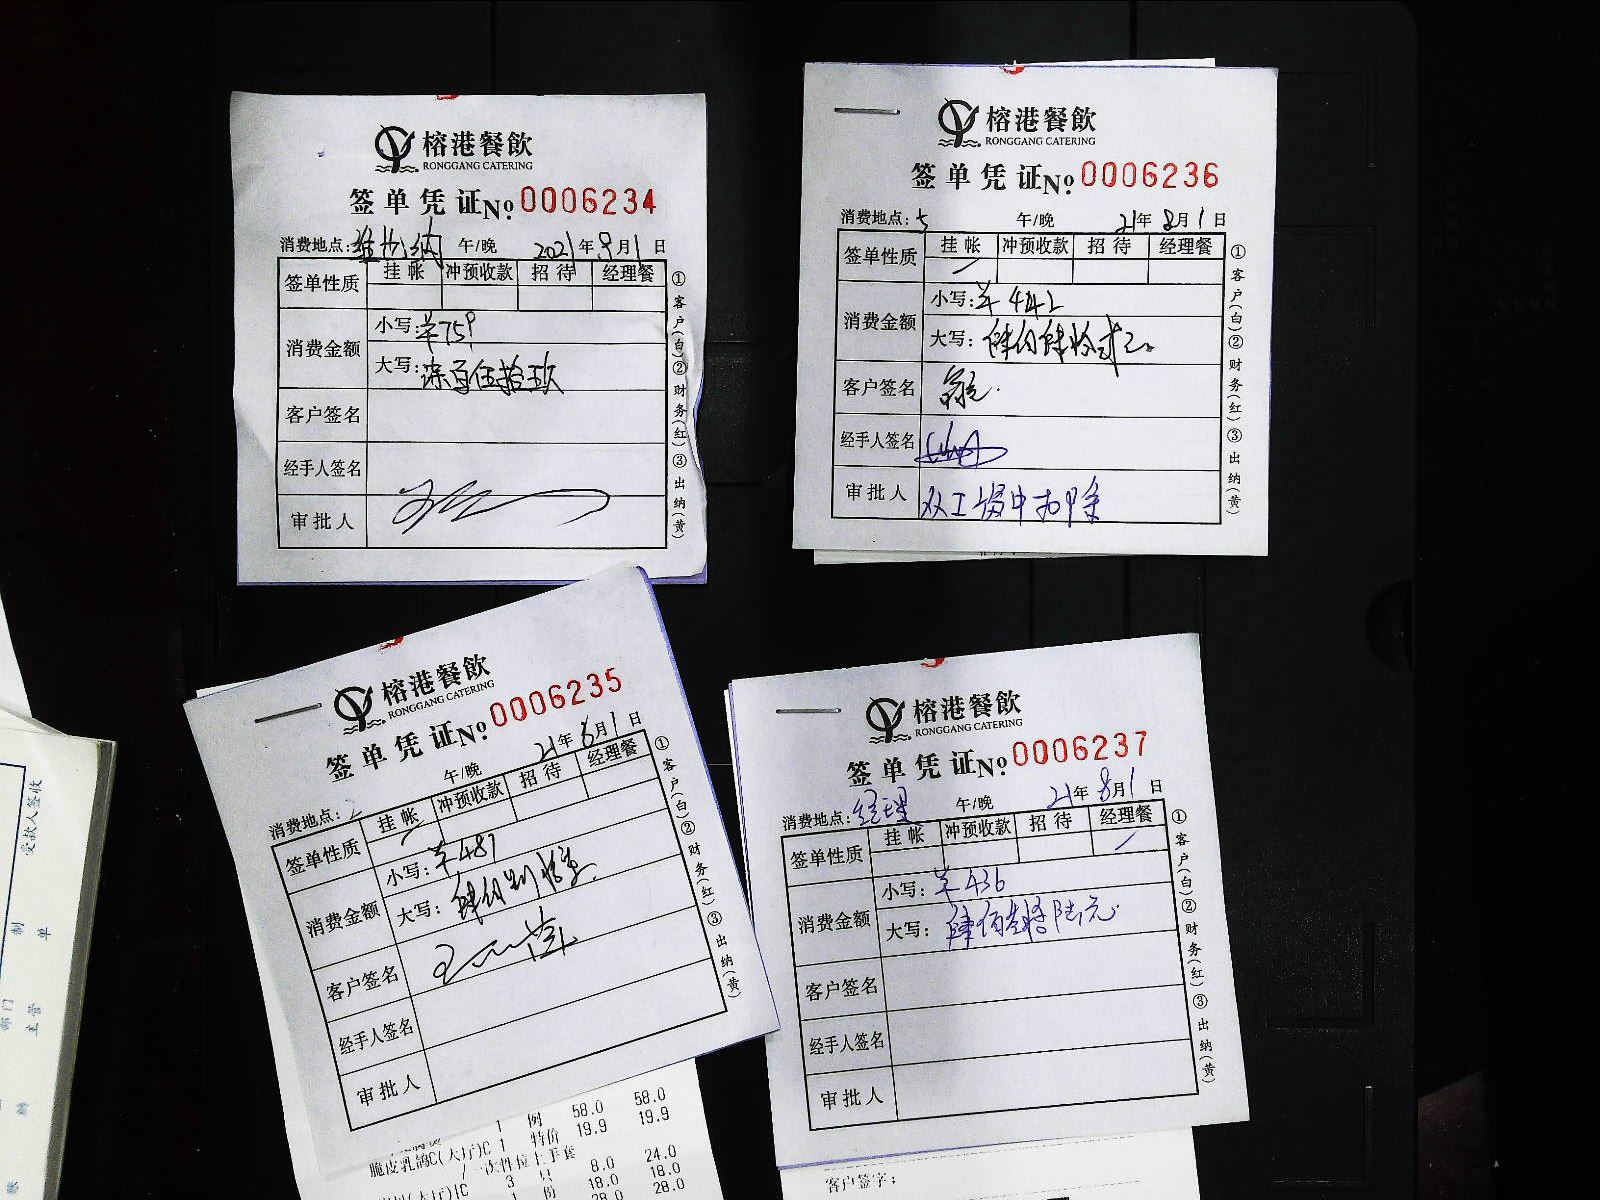 榕港餐飲
RONGGANG CATERING
签单凭证№ 0006234
消费地点:维也纳 午/晚 2021年8月1日
签单性质 挂帐 冲预收款 招待 经理餐
消费金额 小写:¥759
大写:柒百伍拾玖
客户签名
经手人签名
审批人
①客户(白)②财务(红)③出纳(黄)
榕港餐飲
RONGGANG CATERING
签单凭证№ 0006236
消费地点:5 午/晚 21年8月1日
签单性质 挂帐 冲预收款 招待 经理餐
消费金额 小写:¥442
大写:肆佰肆拾贰元
客户签名
经手人签名
审批人 从工资中扣除
①客户(白)②财务(红)③出纳(黄)
榕港餐飲
RONGGANG CATERING
签单凭证№ 0006235
消费地点:2 午/晚 21年8月1日
签单性质 挂帐 冲预收款 招待 经理餐
消费金额 小写:¥487
大写:肆佰捌拾
客户签名
经手人签名
审批人
①客户(白)②财务(红)③出纳(黄)
1 例 58.0 58.0
脆皮乳鸽C(大厅)C 1 特价 19.9 19.9
一次性位上手套
3 只 8.0 24.0
(大厅)C 1 份 18.0 18.0
28.0 28.0
榕港餐飲
RONGGANG CATERING
签单凭证№ 0006237
消费地点:经理 午/晚 21年8月1日
签单性质 挂帐 冲预收款 招待 经理餐
消费金额 小写:¥436
大写:肆佰叁拾陆元
客户签名
经手人签名
审批人
①客户(白)②财务(红)③出纳(黄)
客户签字:
受款人签收
制单
部门主管